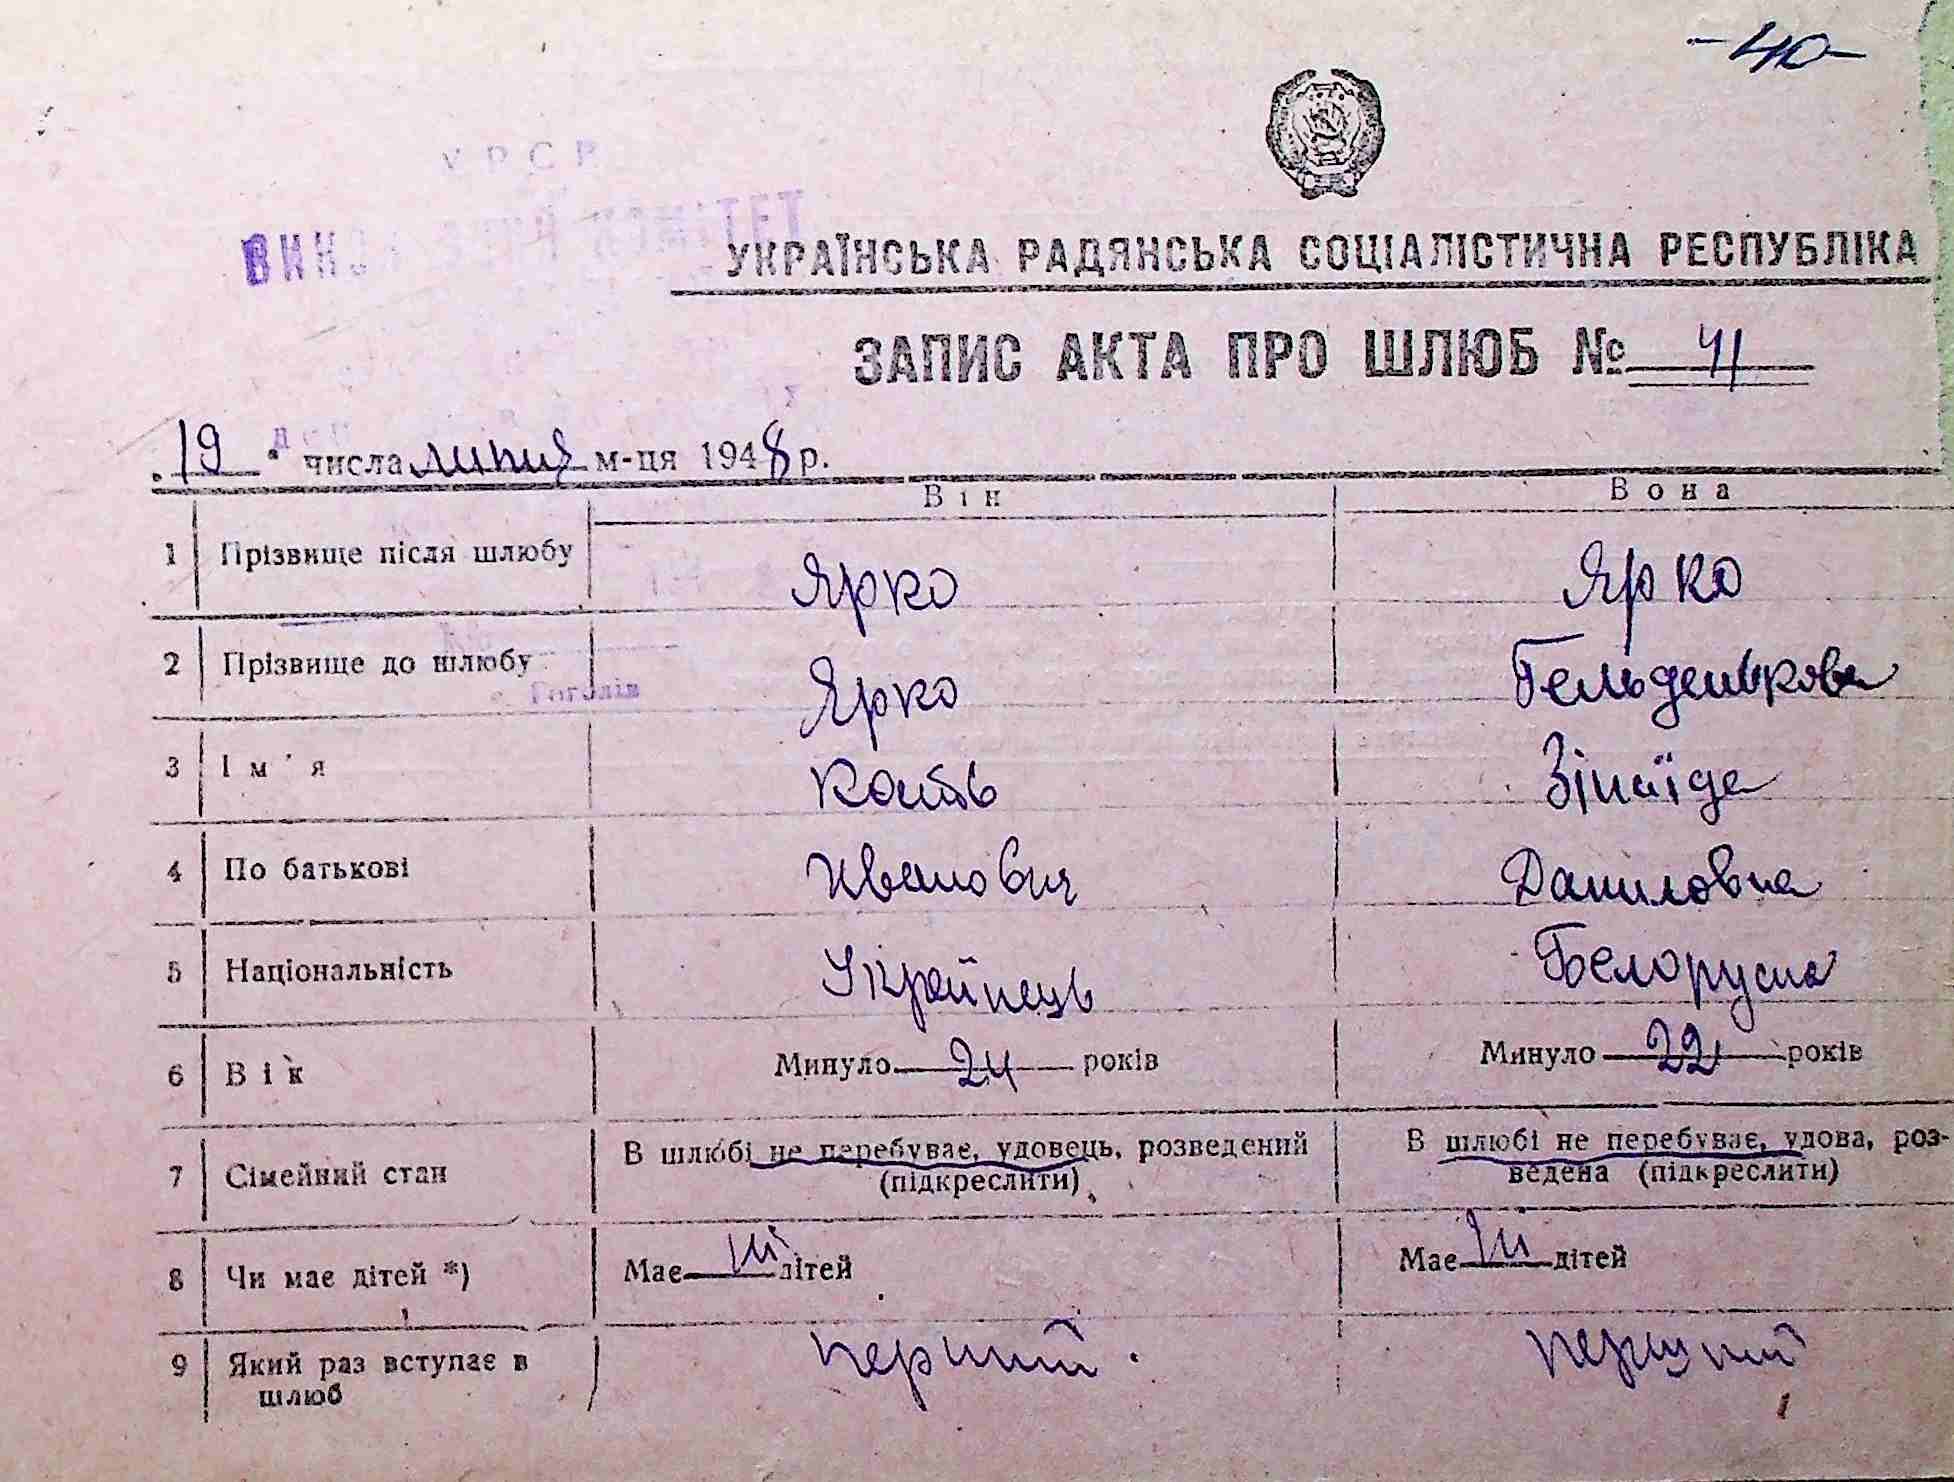 -40-
УРСР
ВИКОНАВЧИЙ КОМІТЕТ
УКРАЇНСЬКА РАДЯНСЬКА СОЦІАЛІСТИЧНА РЕСПУБЛІКА
ЗАПИС АКТА ПРО ШЛЮБ № 41
"19" числа липня м-ця 1948 р.
Він Вона
1 Прізвище після шлюбу Ярко Ярко
2 Прізвище до шлюбу Ярко Гельденькова
с. Гоголів
3 Ім'я Кость Зінаїда
4 По батькові Иванович Даниловна
5 Національність Українець Белоруска
6 Вік Минуло 24 років Минуло 22 років
7 Сімейний стан В шлюбі не перебуває, удовець, розведений В шлюбі не перебуває, удова, роз-
(підкреслити) ведена (підкреслити)
8 Чи має дітей *) Має дітей Має дітей
9 Який раз вступає в перший перший
шлюб